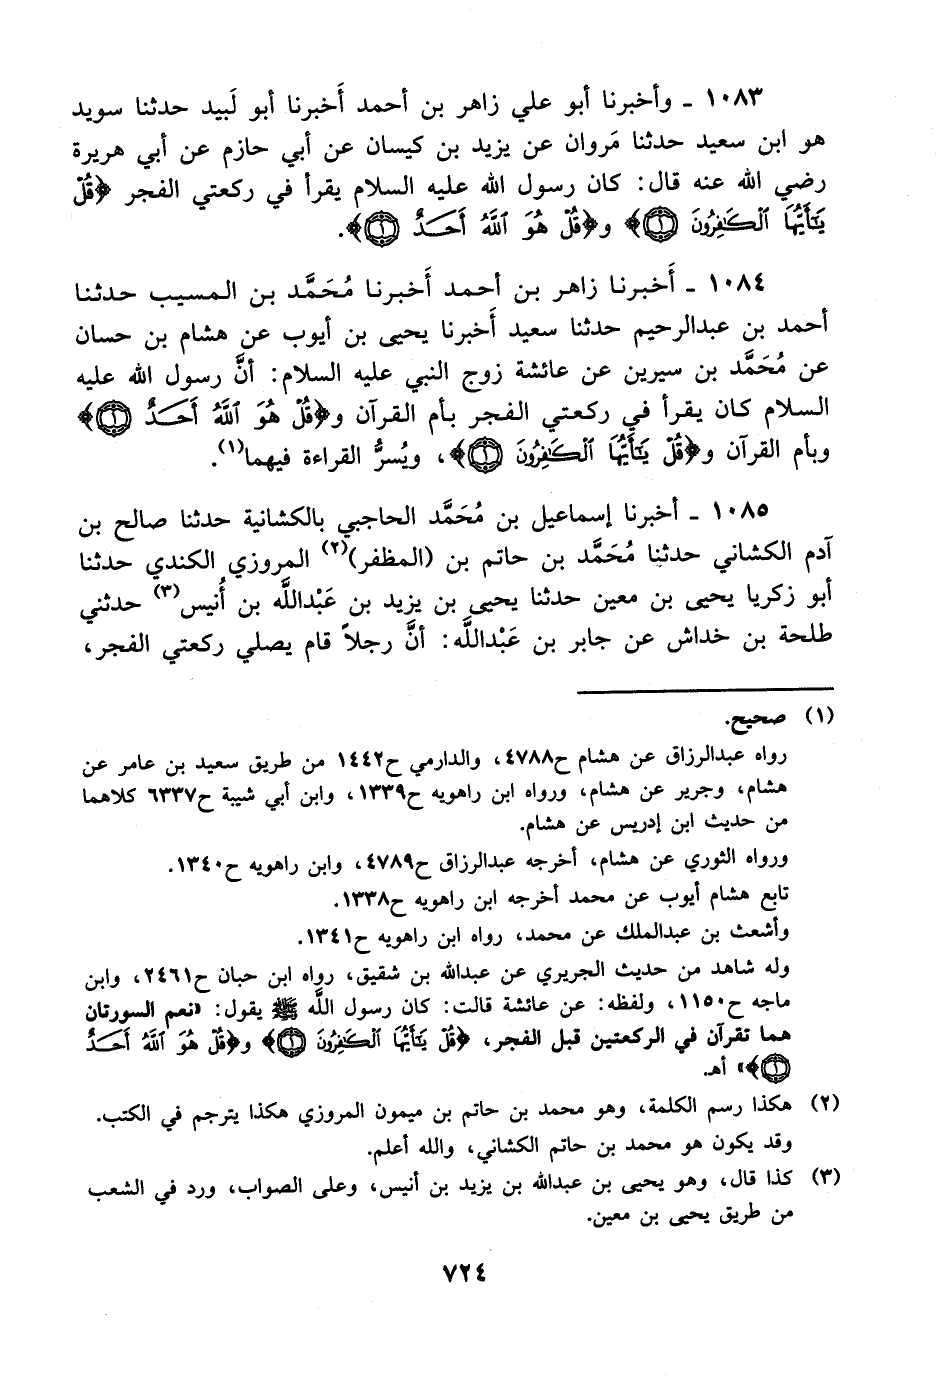 ١٠٨٣ ـ وأخبرنا أبو علي زاهر بن أحمد أَخبرنا أبو لَبيد حدثنا سويد
هو ابن سعيد حدثنا مَروان عن يزيد بن كيسان عن أبي حازم عن أبي هريرة
رضي الله عنه قال: كان رسول الله عليه السلام يقرأ في ركعتي الفجر ﴿قُلْ
يَٰٓأَيُّهَا ٱلْكَٰفِرُونَ ۝١﴾ و﴿قُلْ هُوَ ٱللَّهُ أَحَدٌ ۝١﴾.
١٠٨٤ ـ أَخبرنا زاهر بن أحمد أَخبرنا مُحَمَّد بن المسيب حدثنا
أحمد بن عبدالرحيم حدثنا سعيد أَخبرنا يحيى بن أيوب عن هشام بن حسان
عن مُحَمَّد بن سيرين عن عائشة زوج النبي عليه السلام: أنَّ رسول الله عليه
السلام كان يقرأ في ركعتي الفجر بأم القرآن و﴿قُلْ هُوَ ٱللَّهُ أَحَدٌ ۝١﴾
وبأم القرآن و﴿قُلْ يَٰٓأَيُّهَا ٱلْكَٰفِرُونَ ۝١﴾، ويُسرُّ القراءة فيهما(١).
١٠٨٥ ـ أخبرنا إسماعيل بن مُحَمَّد الحاجبي بالكشانية حدثنا صالح بن
آدم الكشاني حدثنا مُحَمَّد بن حاتم بن (المظفر)(٢) المروزي الكندي حدثنا
أبو زكريا يحيى بن معين حدثنا يحيى بن يزيد بن عَبْدالله بن أُنيس(٣) حدثني
طلحة بن خداش عن جابر بن عَبْدالله: أنَّ رجلاً قام يصلي ركعتي الفجر،
(١) صحيح.
رواه عبدالرزاق عن هشام ح٤٧٨٨، والدارمي ح١٤٤٢ من طريق سعيد بن عامر عن
هشام، وجرير عن هشام، ورواه ابن راهويه ح١٣٣٩، وابن أبي شيبة ح٦٣٣٧ كلاهما
من حديث ابن إدريس عن هشام.
ورواه الثوري عن هشام، أخرجه عبدالرزاق ح٤٧٨٩، وابن راهويه ح١٣٤٠.
تابع هشام أيوب عن محمد أخرجه ابن راهويه ح١٣٣٨.
وأشعث بن عبدالملك عن محمد، رواه ابن راهويه ح١٣٤١.
وله شاهد من حديث الجريري عن عبدالله بن شقيق، رواه ابن حبان ح٢٤٦١، وابن
ماجه ح١١٥٠، ولفظه: عن عائشة قالت: كان رسول الله ﷺ يقول: «نعم السورتان
هما تقرآن في الركعتين قبل الفجر، ﴿قُلْ يَٰٓأَيُّهَا ٱلْكَٰفِرُونَ ۝١﴾ و﴿قُلْ هُوَ ٱللَّهُ أَحَدٌ
۝١﴾» أهـ.
(٢) هكذا رسم الكلمة، وهو محمد بن حاتم بن ميمون المروزي هكذا يترجم في الكتب.
وقد يكون هو محمد بن حاتم الكشاني، والله أعلم.
(٣) كذا قال، وهو يحيى بن عبدالله بن يزيد بن أنيس، وعلى الصواب، ورد في الشعب
من طريق يحيى بن معين.
٧٢٤